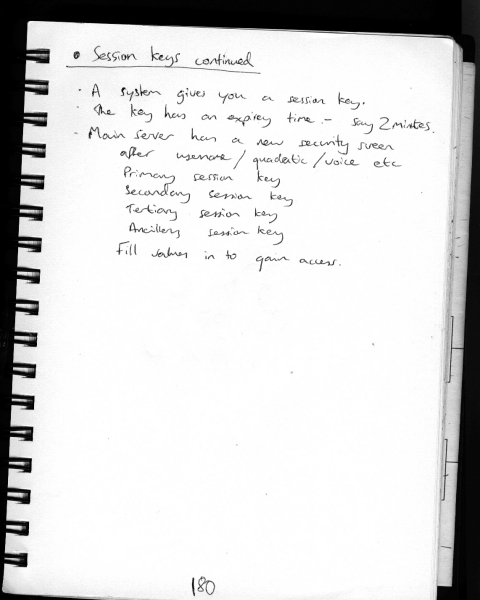 • Session keys continued
· A system gives you a session key.
· The key has an expirey time - say 2 minutes.
- Main server has a new security screen
after username / quadratic / voice etc
Primary session key
Secondary session key
Tertiary session key
Ancillary session key
Fill values in to gain access.
180